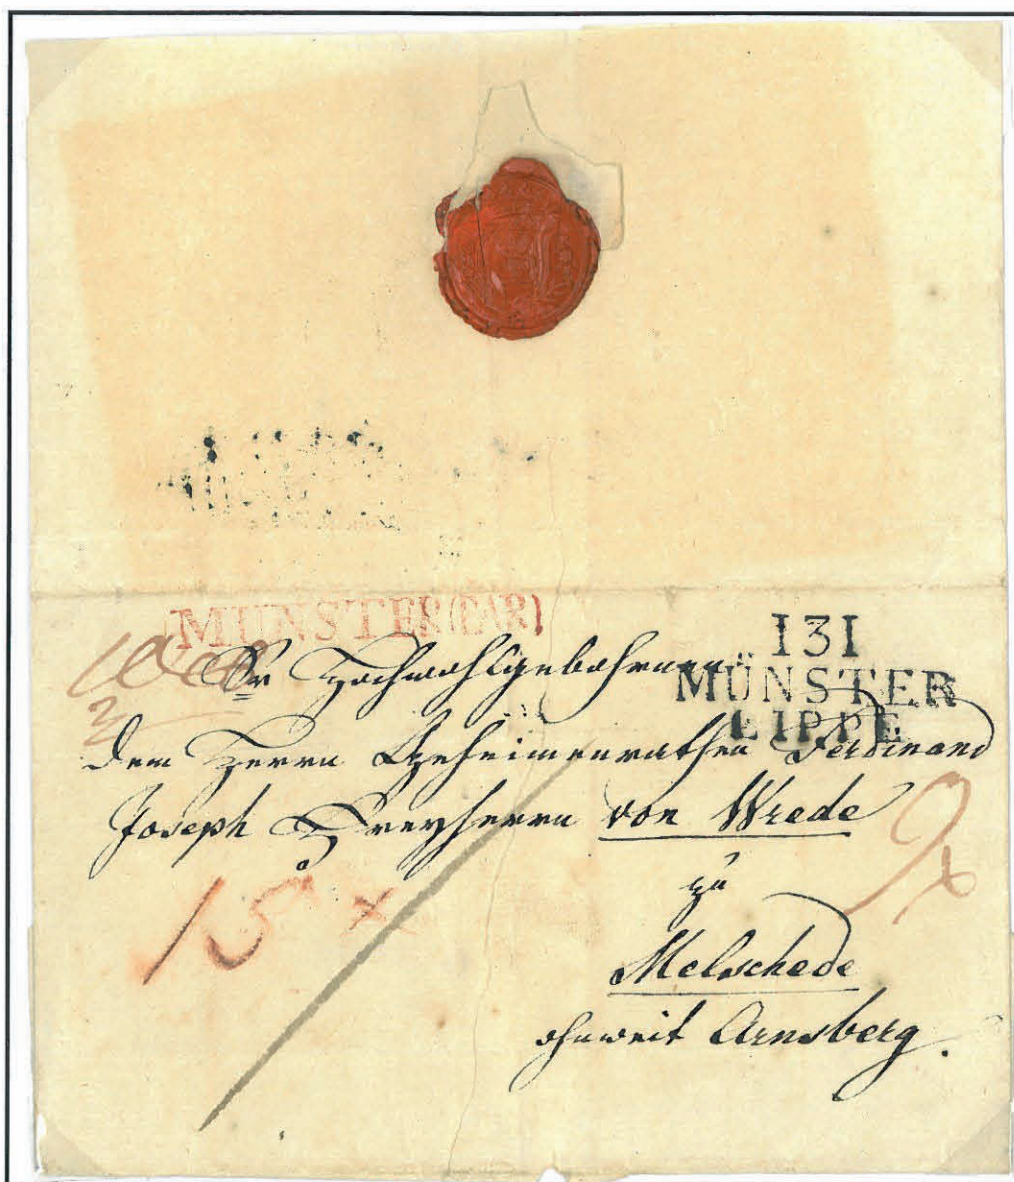 MÜNSTER (PAR)
131
MÜNSTER
LIPPE
Sr Hochwohlgebohrnen
dem Herrn Geheimenrathen Ferdinand
Joseph Freyherrn von Wrede
zu
Melschede
ohnweit Arnsberg.
15 x
9 x